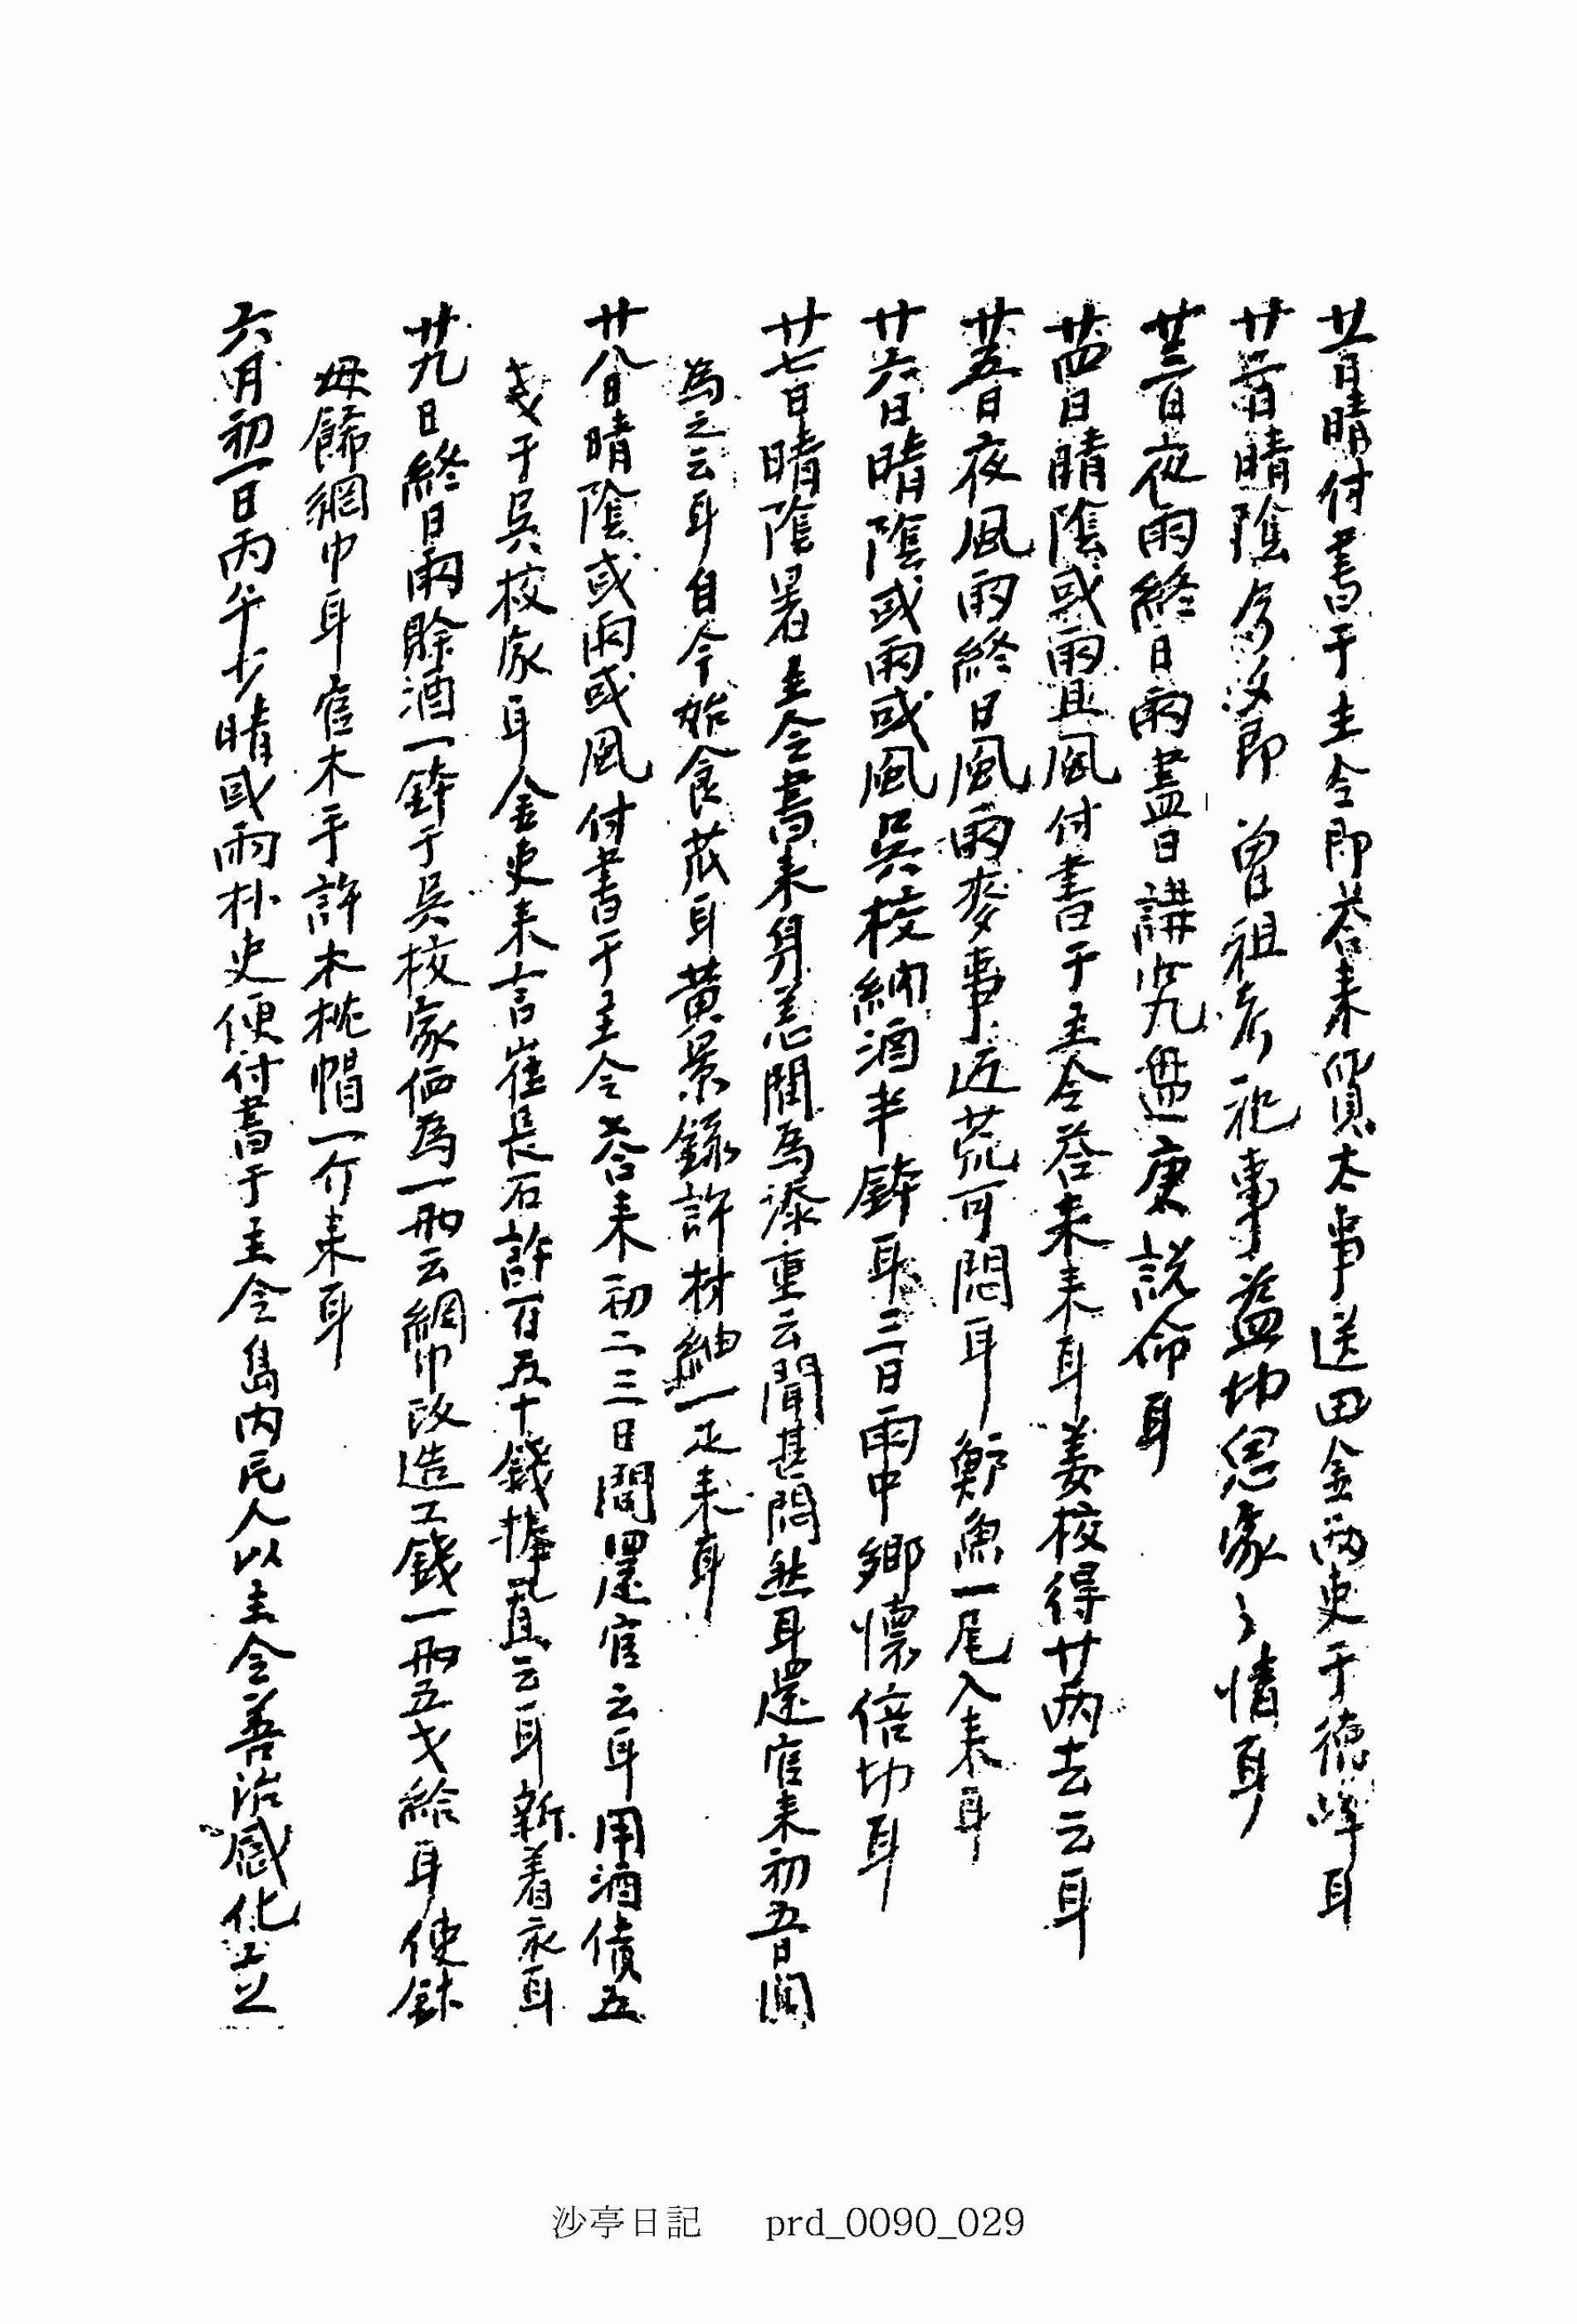 廿一日晴付書于主令即答来貸太事送田金兩吏于德峰耳
廿二日晴陰今夜即曾祖考祀事益切思家之情耳
廿三日夜雨終日雨盡日講究盤庚說命耳
廿四日晴陰或雨且風付書于主令答来来耳姜校得廿两去云耳
廿五日夜風雨終日風雨麥事近荒可悶耳鄭魚一尾入来耳
廿六日晴陰或雨或風吳校納酒半鉢耳三日雨中鄉懷倍切耳
廿七日晴陰暑主令書来身恙間為添重云聞甚悶然耳還官来初五日間
為之云耳自今始食苽耳黃景錄許材紬一疋来耳
廿八日晴陰或雨或風付書于主令答来初二三日間還官云耳用酒債五
戔于吳校家耳金吏来言崔長石許百五十錢捧置云耳新着衣耳
廿九日終日雨賒酒一鉢于吳校家価為一两云網巾改造工錢一两五戈給耳使銶
母歸網巾耳官木手許木枕帽一介来耳
六月初一日丙午少晴或雨朴吏便付書于主令島内民人以主令善治感化立
沙亭日記 prd_0090_029